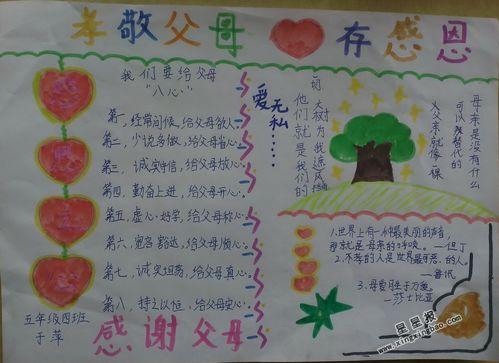 孝敬父母 存感恩
我们要给父母
"八心"
第一,经常问候,给父母欣心。
第二,少说多做,给父母省心。
第三,诚实守信,给父母放心。
第四,勤奋上进,给父母开心。
第五,虚心好学,给父母称心。
第六,宽容豁达,给父母顺心。
第七,诚实坦荡,给父母真心。
第八,持之以恒,给父母安心。
感谢父母
五年级四班
于萍
感恩
爱无私……
母亲是没有什么
可以代替的
父亲就像一棵
大树为我遮风挡
他们就是我们的
1.世界上有一种最美丽的声音,
那就是母亲的呼唤。—但丁
2.不孝的人是世界最可恶的人。
—鲁讯
3.母爱胜于万爱。
—莎士比亚
星星报
www.xingxingbao.com